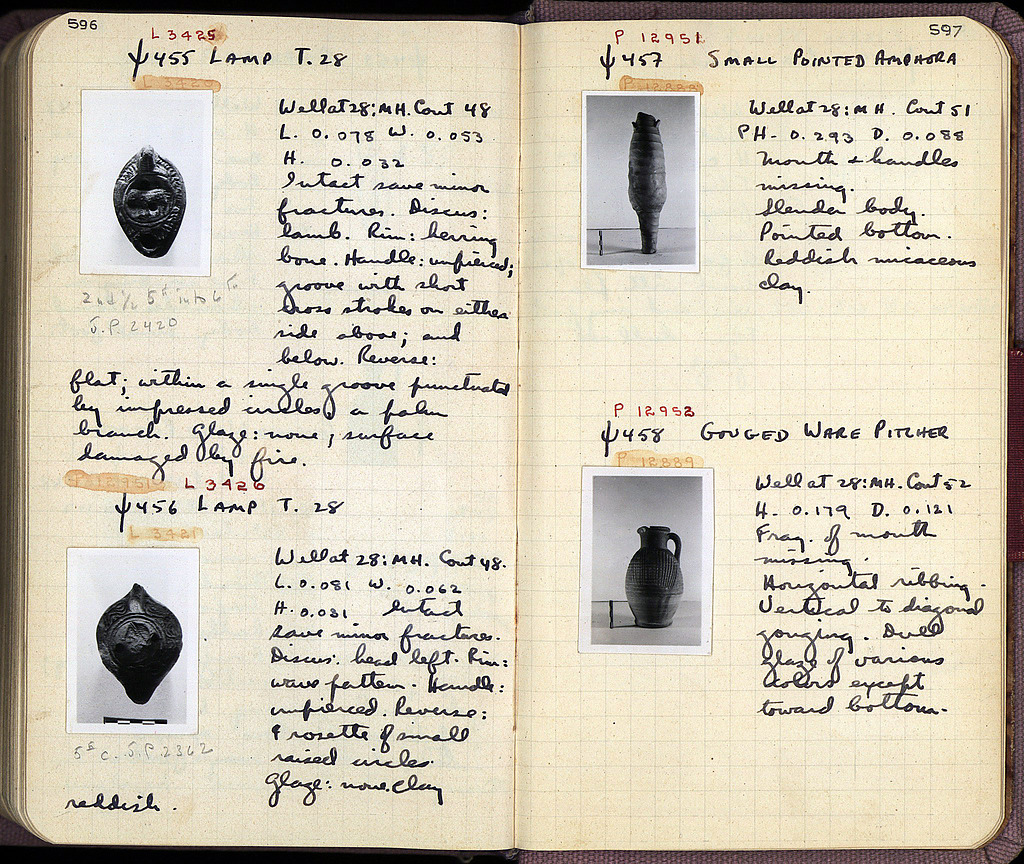 596
L 3425
ψ455 LAMP T. 28
L 3420
Well at 28:MH. Cont 48
L. 0.078 W. 0.053
H. 0.032
Intact save minor
fractures. Discus:
lamb. Rim: herring
bone. Handle: unpierced;
groove with short
cross strokes on either
side above; and
below. Reverse:
flat; within a single groove punctuated
by impressed circles, a palm
branch. Glaze: none; surface
damaged by fire.
2nd ½ 5th into 6th
J.P. 2420
L 3426
ψ456 LAMP T. 28
L 3421
Well at 28:MH. Cont 48.
L. 0.081 W. 0.062
H. 0.031 Intact
save minor fractures.
Discus: head left. Rim:
wave pattern. Handle:
unpierced. Reverse:
rosette of small
raised circles.
Glaze: none. Clay
reddish.
5th c. J.P. 2362
597
P 12951
ψ457 SMALL POINTED AMPHORA
Well at 28:MH. Cont 51
PH. 0.293 D. 0.088
Mouth & handles
missing.
Slender body.
Pointed bottom.
Reddish micaceous
clay.
P 12952
ψ458 GOUGED WARE PITCHER
P 12889
Well at 28:MH. Cont 52
H. 0.179 D. 0.121
Frag. of mouth
missing.
Horizontal ribbing.
Vertical to diagonal
gouging. Dull
glaze of various
colors except
toward bottom.